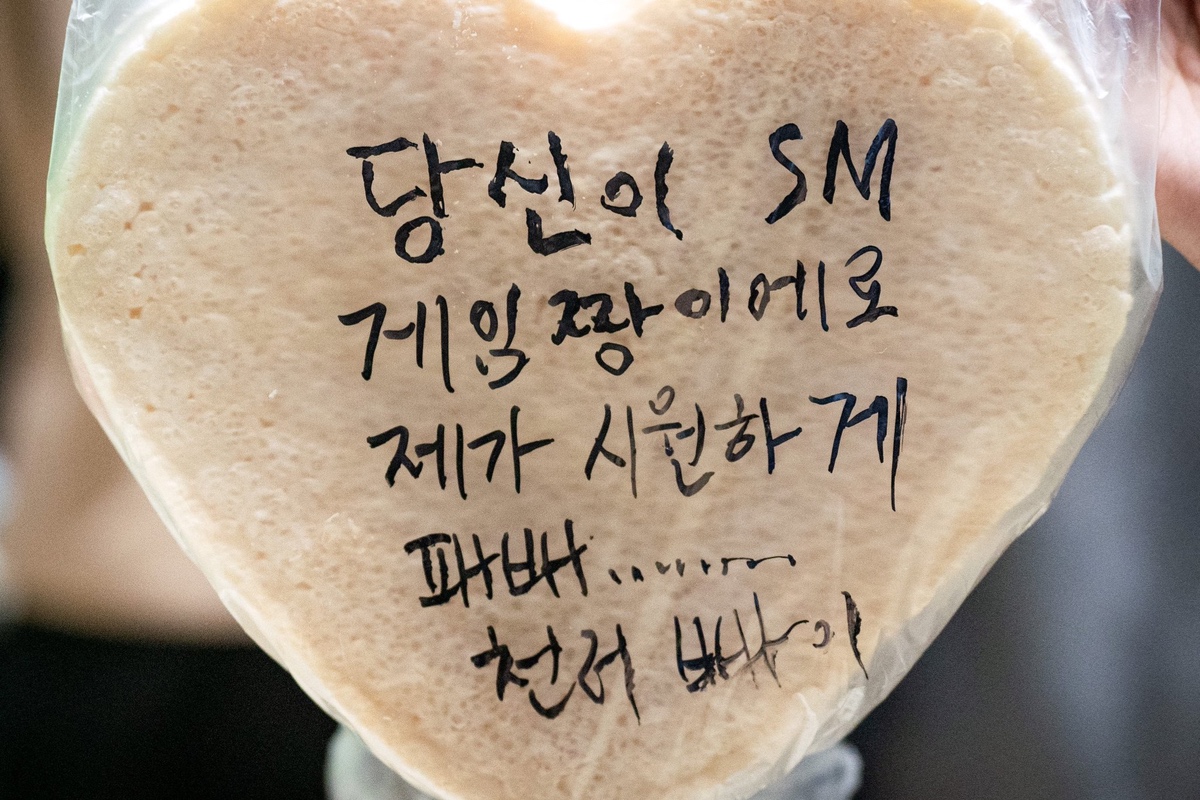 당신이 SM
게임짱이에로
제가 시원하게
파바........
천러 빠이